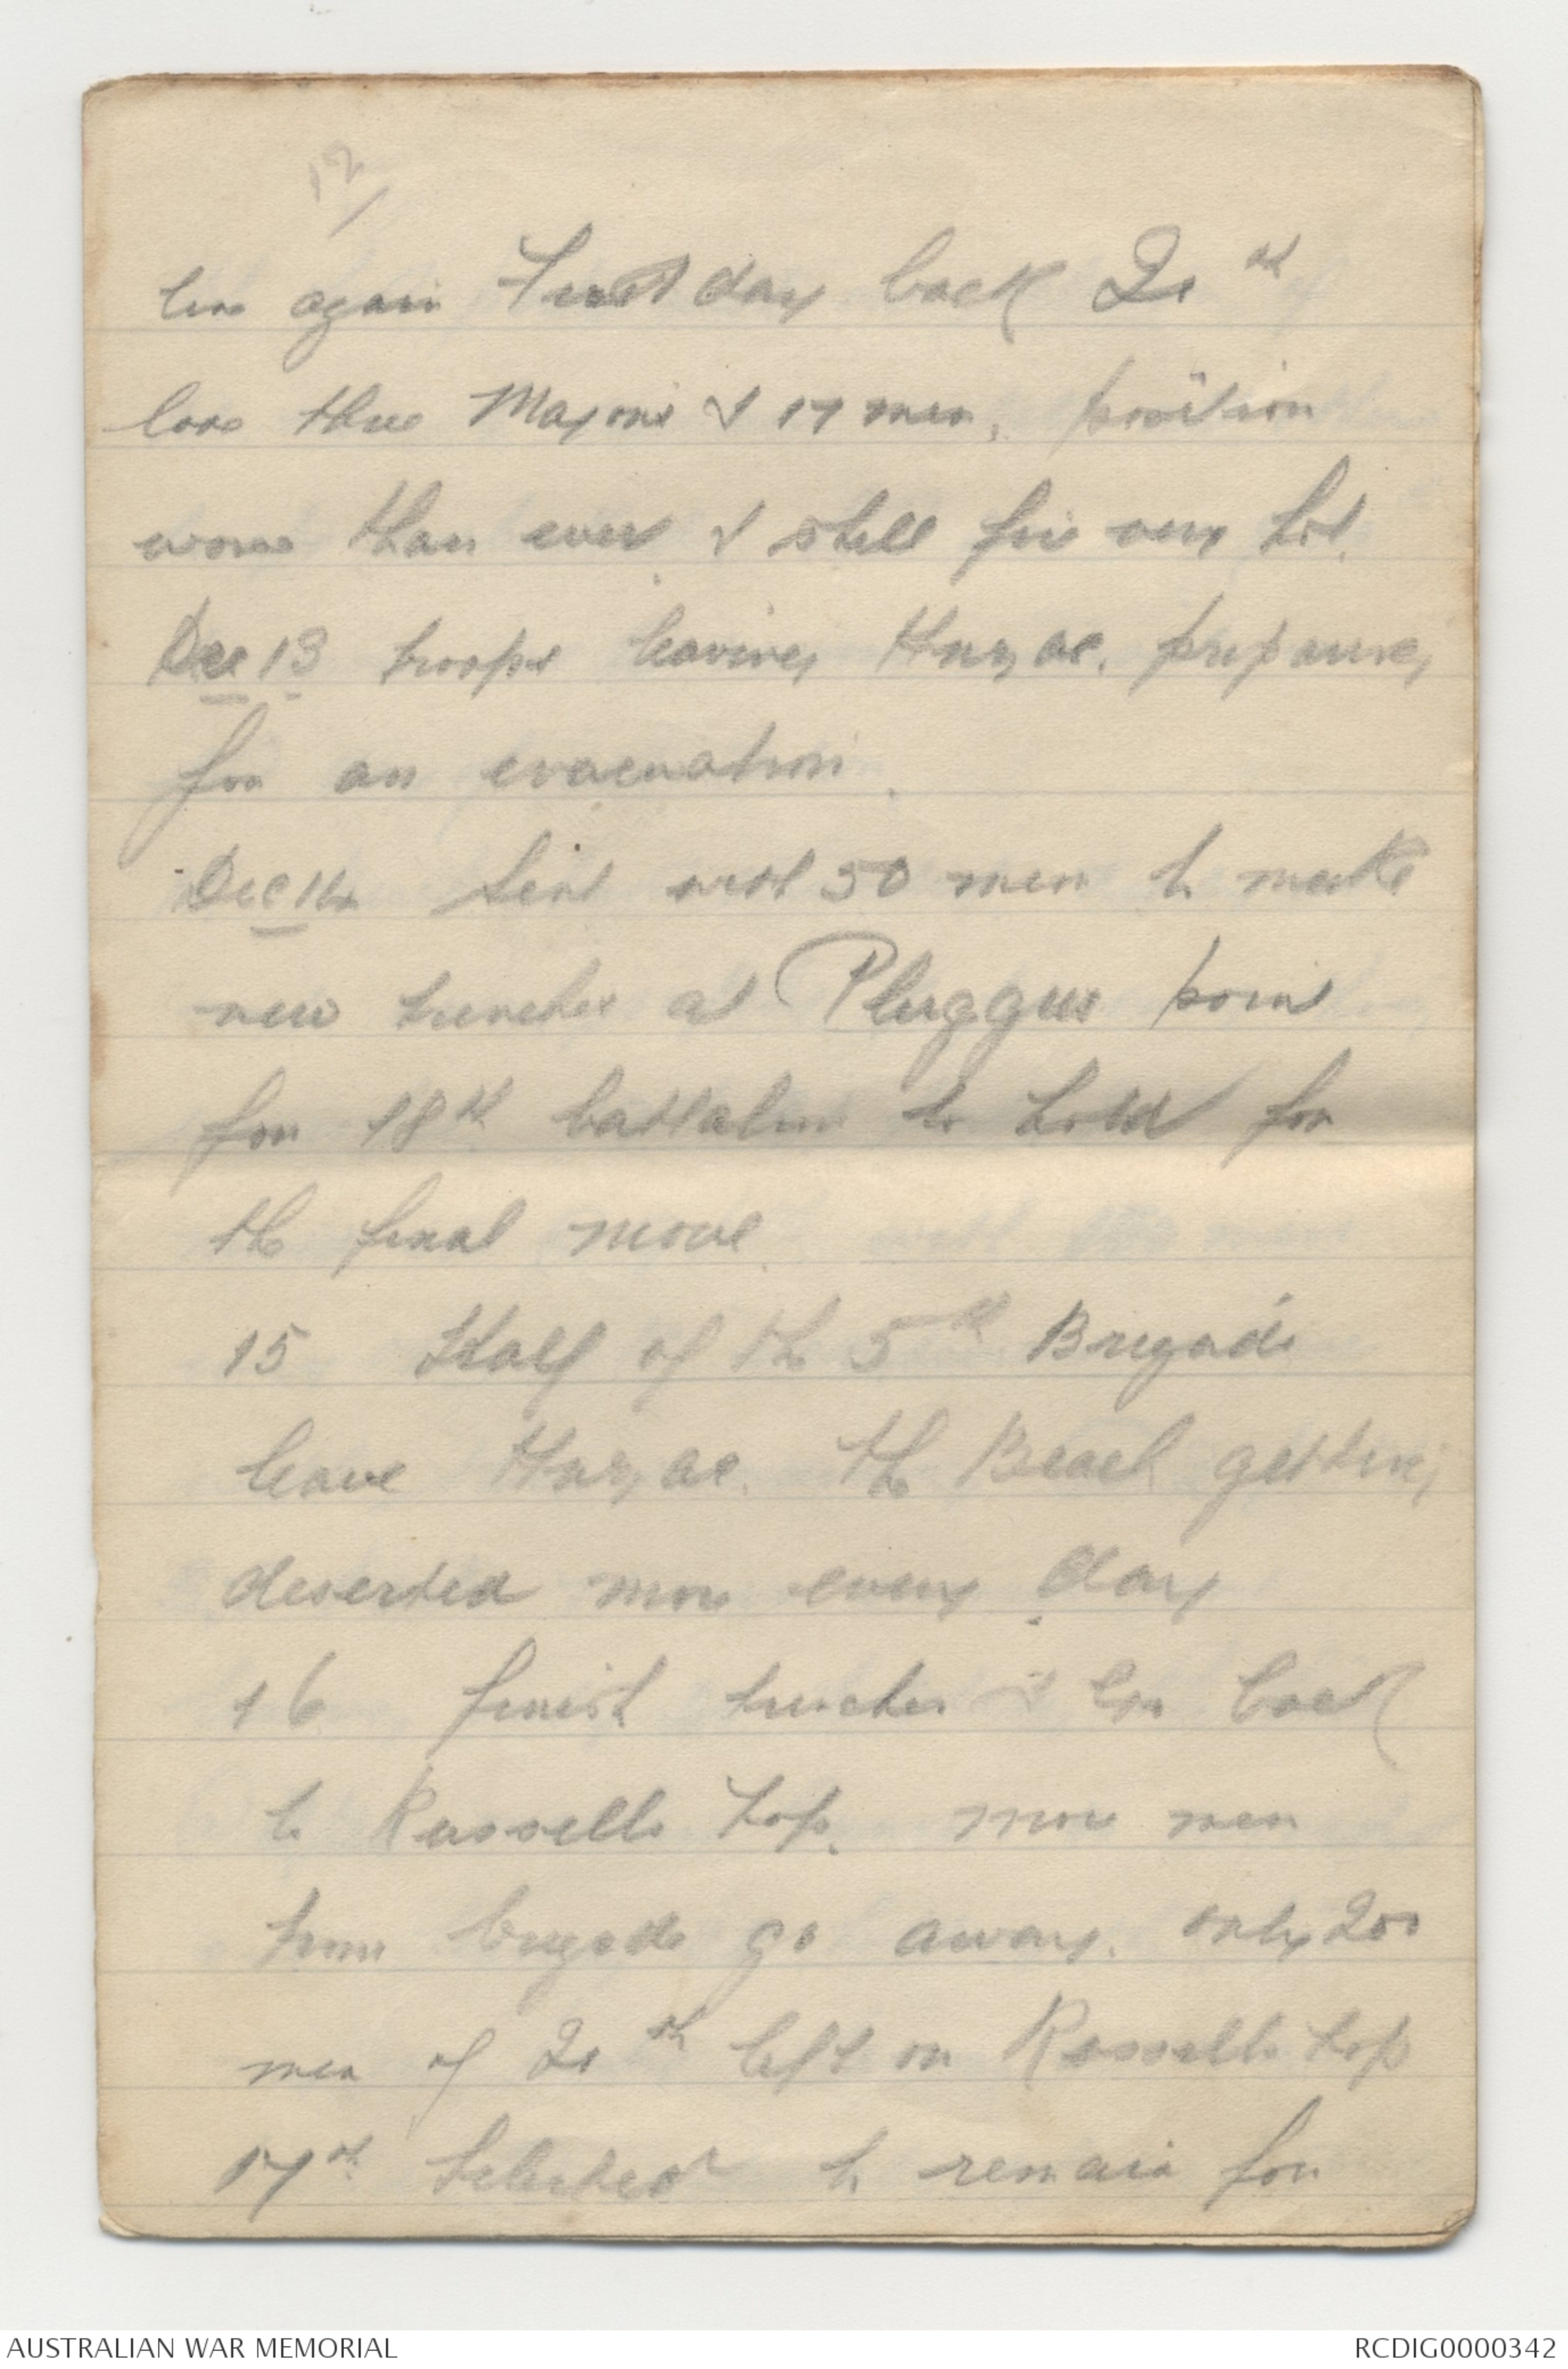 12/
line again First day back 20th
lose three Majors & 17 men, position
worse than ever & shell fire very hot.
Dec 13 troops leaving Anzac. preparing
for an evacuation.
Dec 14 Sent with 50 men to make
new trenches at Pluggus point
for 18th battalion to hold for
the final move.
15 Half of the 5th Brigade
leave Anzac. the Beach getting
deserted more every day
16 finish trenches & go back
to Russells top. more men
from brigade go away. only 200
men of 20th left on Russells top
17th Selected to remain for
AUSTRALIAN WAR MEMORIAL
RCDIG0000342